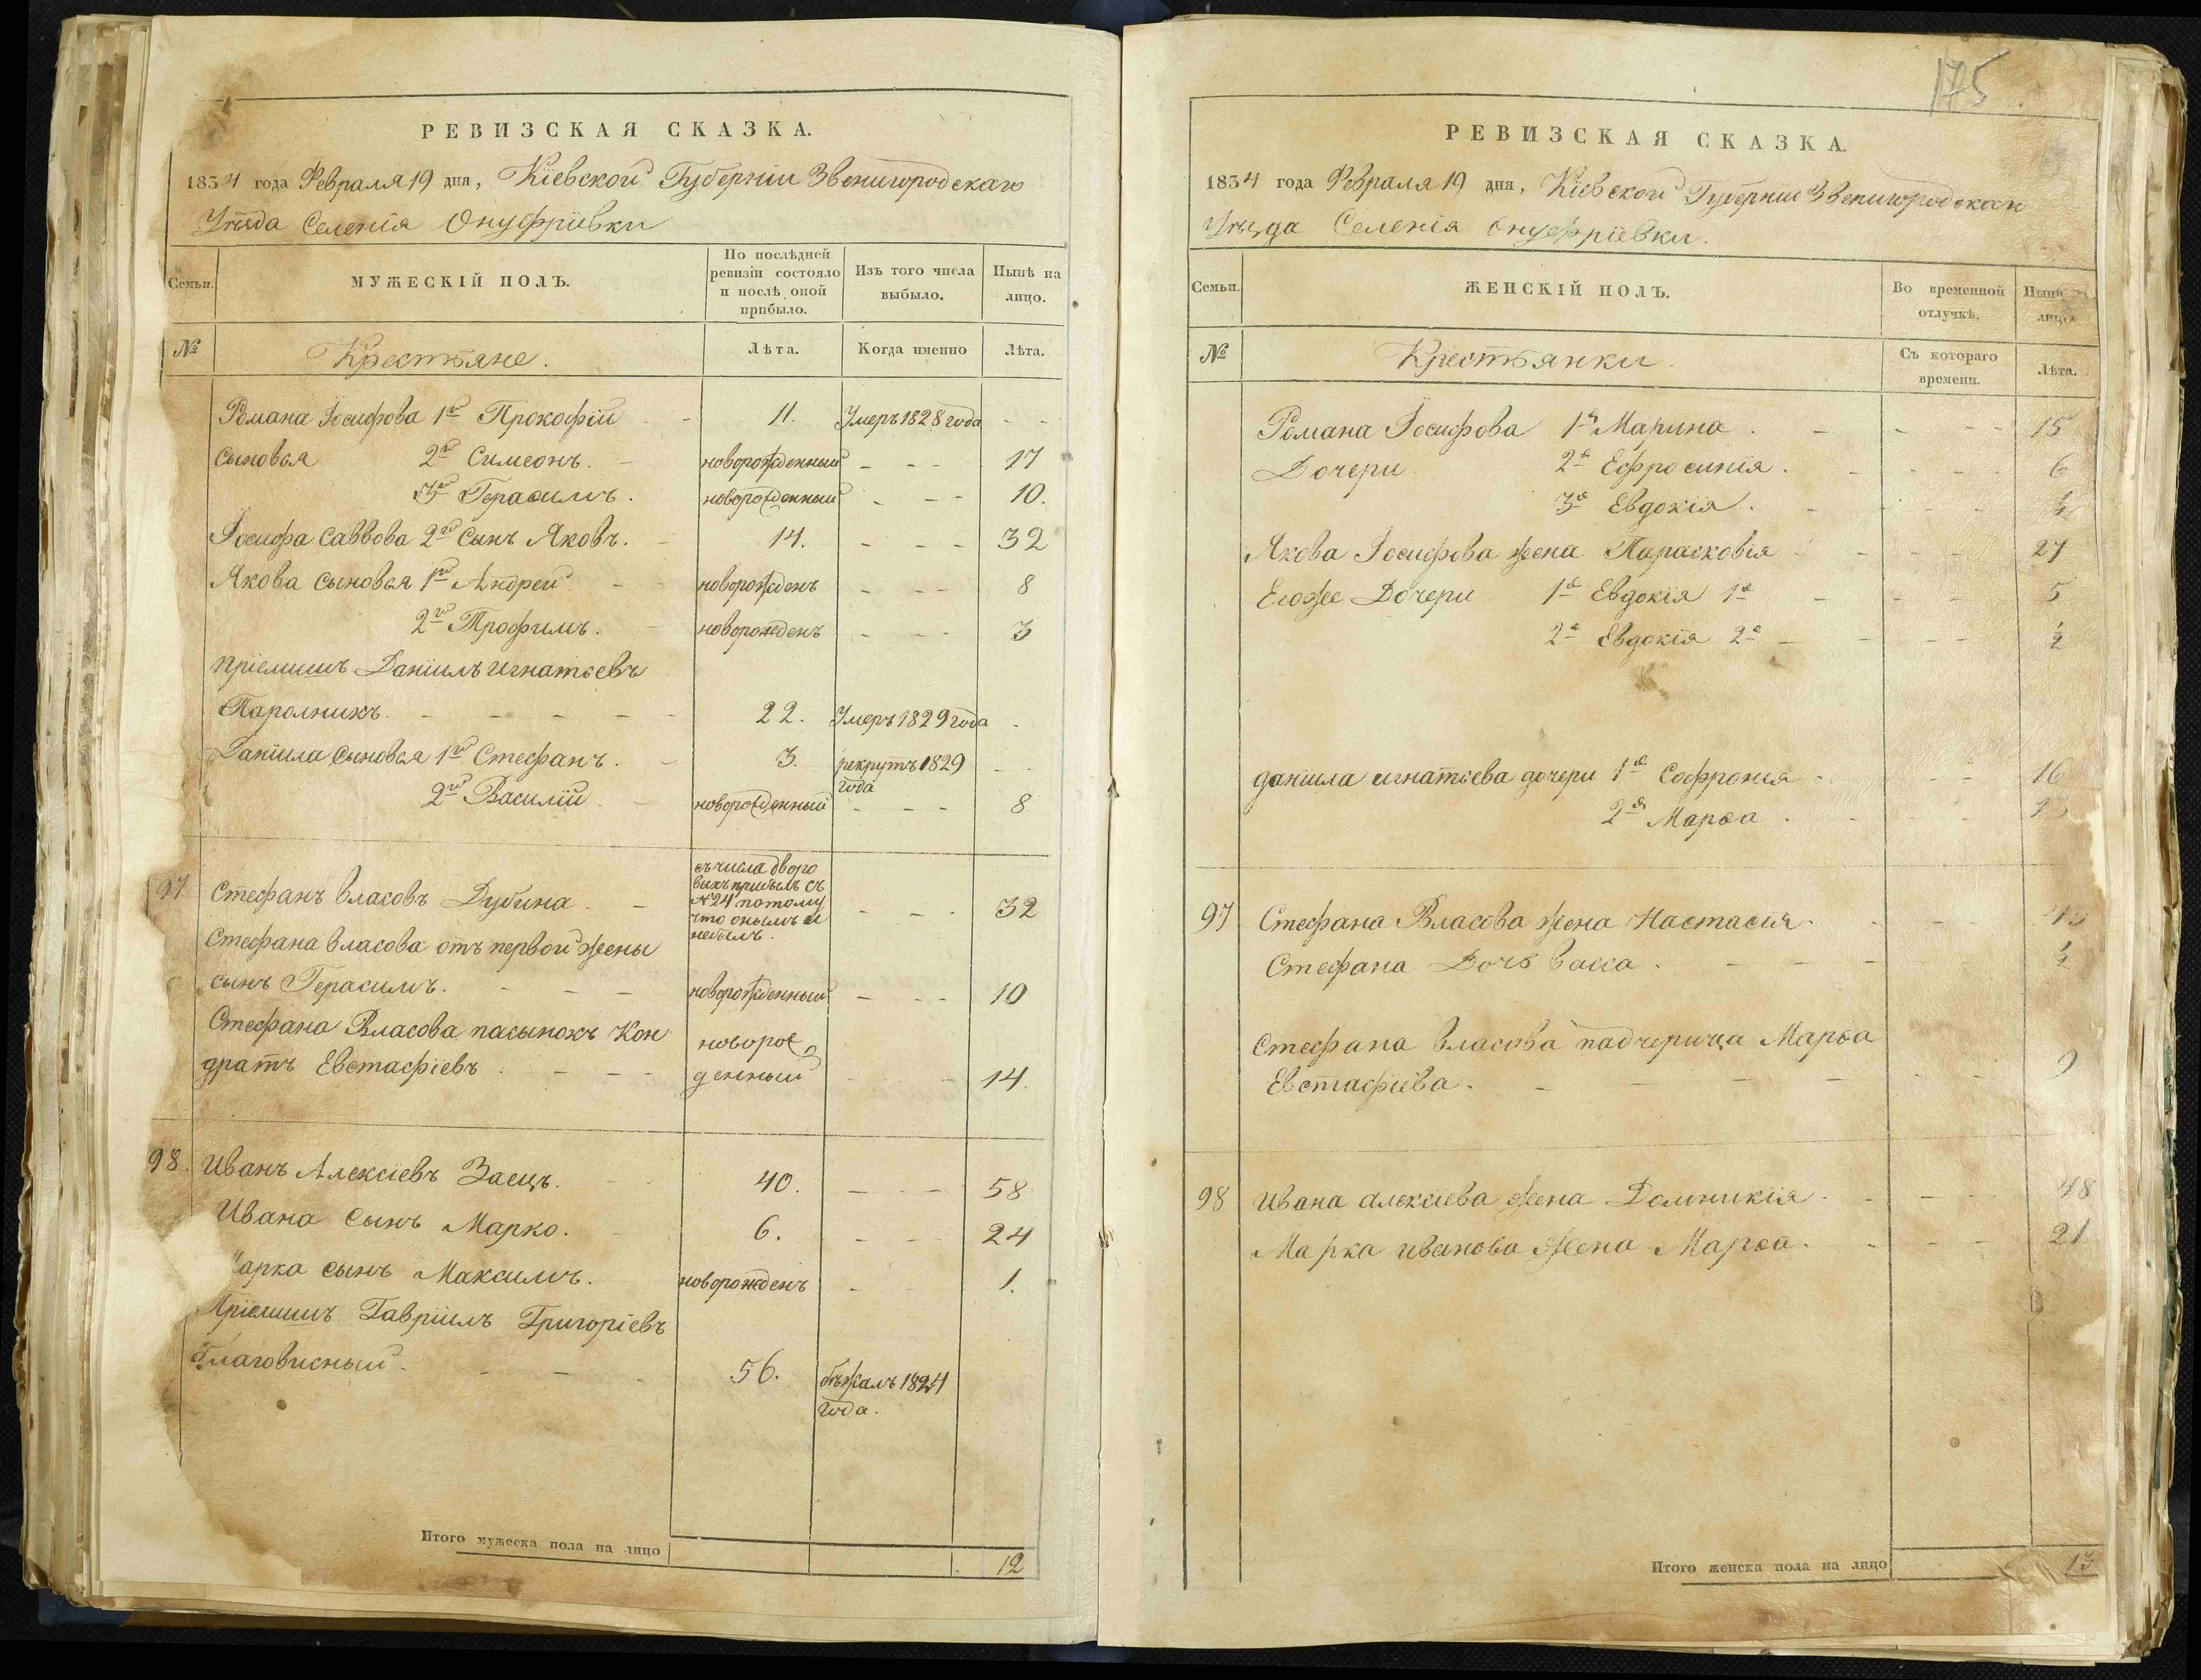 РЕВИЗСКАЯ СКАЗКА.
1834 года Февраля 19 дня, Кіевской Губерніи Звенигородскаго
Уѣзда Селенія Онуфріевки
Семьи.
МУЖЕСКІЙ ПОЛЪ.
По послѣдней ревизіи состояло и послѣ оной прибыло.
Изъ того числа выбыло.
Нынѣ на лицо.
№
Крестьяне.
Лѣта.
Когда именно
Лѣта.
Романа Іосифова 1й Прокофій - 11. Умеръ 1828 года - -
сыновья 2й Симеонъ. - новорожденный - - - 17
3й Герасимъ. новорожденный - - - 10.
Іосифа Саввова 2й сынъ Яковъ. - 14. - - - 32
Якова сыновья 1й Андрей - - новорожденъ - - - 8
2й Трофимъ. - новорожденъ - - - 3
пріемишъ Даніилъ Игнатьевъ
Паролникъ. - - - - - 22. Умеръ 1829 года -
Даніила сыновья 1й Стефанъ. - 3. рекрутъ 1829 года - -
2й Василій - новорожденный - - - 8
97 Стефанъ Власовъ Дубина - - съ числа дворо
выхъ прибылъ съ
№ 24 потому
что онымъ и
небылъ. - - - 32
Стефана Власова отъ первой жены
сынъ Герасимъ. - - - новорожденный - - - 10
Стефана Власова пасынокъ Кон
дратъ Евстафіевъ - - - новорожденный - 14.
98. Иванъ Алексіевъ Заецъ. 40. - - - 58
Ивана сынъ Марко. 6. - - - 24
арка сынъ Максимъ. новорожденъ - - 1.
Пріемишъ Гавріилъ Григоріевъ
56. бѣжалъ 1824
года.
Итого мужеска пола на лицо 12
175
РЕВИЗСКАЯ СКАЗКА.
1834 года Февраля 19 дня, Кіевской Губерніи Звенигородскаго
Уѣзда Селенія Онуфріевки.
Семьи.
ЖЕНСКІЙ ПОЛЪ.
Во временной отлучкѣ.
Нынѣ лицо
№
Крестьянки.
Съ котораго времени.
Лѣта.
Романа Іосифова 1я Марина. - - - - 15
Дочери 2я Ефросинія. - - - 6
3я Евдокія. - - - ½
Якова Іосифова жена Парасковія - - - 27
Егоже Дочери 1я Евдокія 1я - - - 5
2я Евдокія 2я - - - - ½
Даніила Игнатьева дочери 1я Софронія - - - 16
2я Марѳа - - - 13
97 Стефана Власова жена Настасія - - - 43
Стефана Дочь Васса. - - - ½
Стефана Власова падчерица Марѳа
Евстафіева. - - - - - - 9
98 Ивана Алексіева жена Домникія - - - 48
Марка Иванова жена Марѳа. - - - 21
Итого женска пола на лицо 13